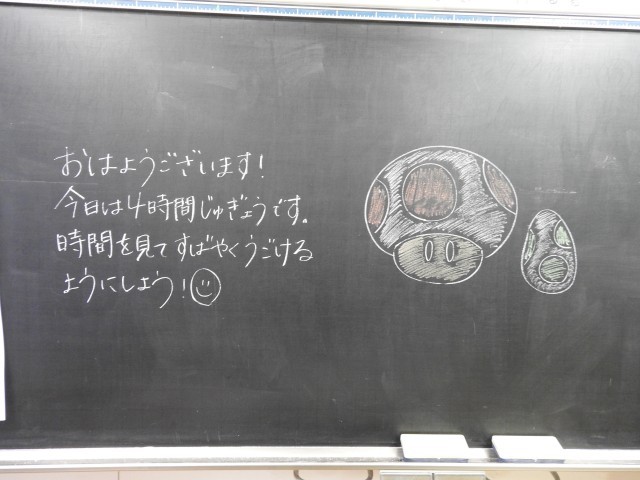 おはようございます!
今日は4時間じゅぎょうです。
時間を見てすばやくうごける
ようにしよう!